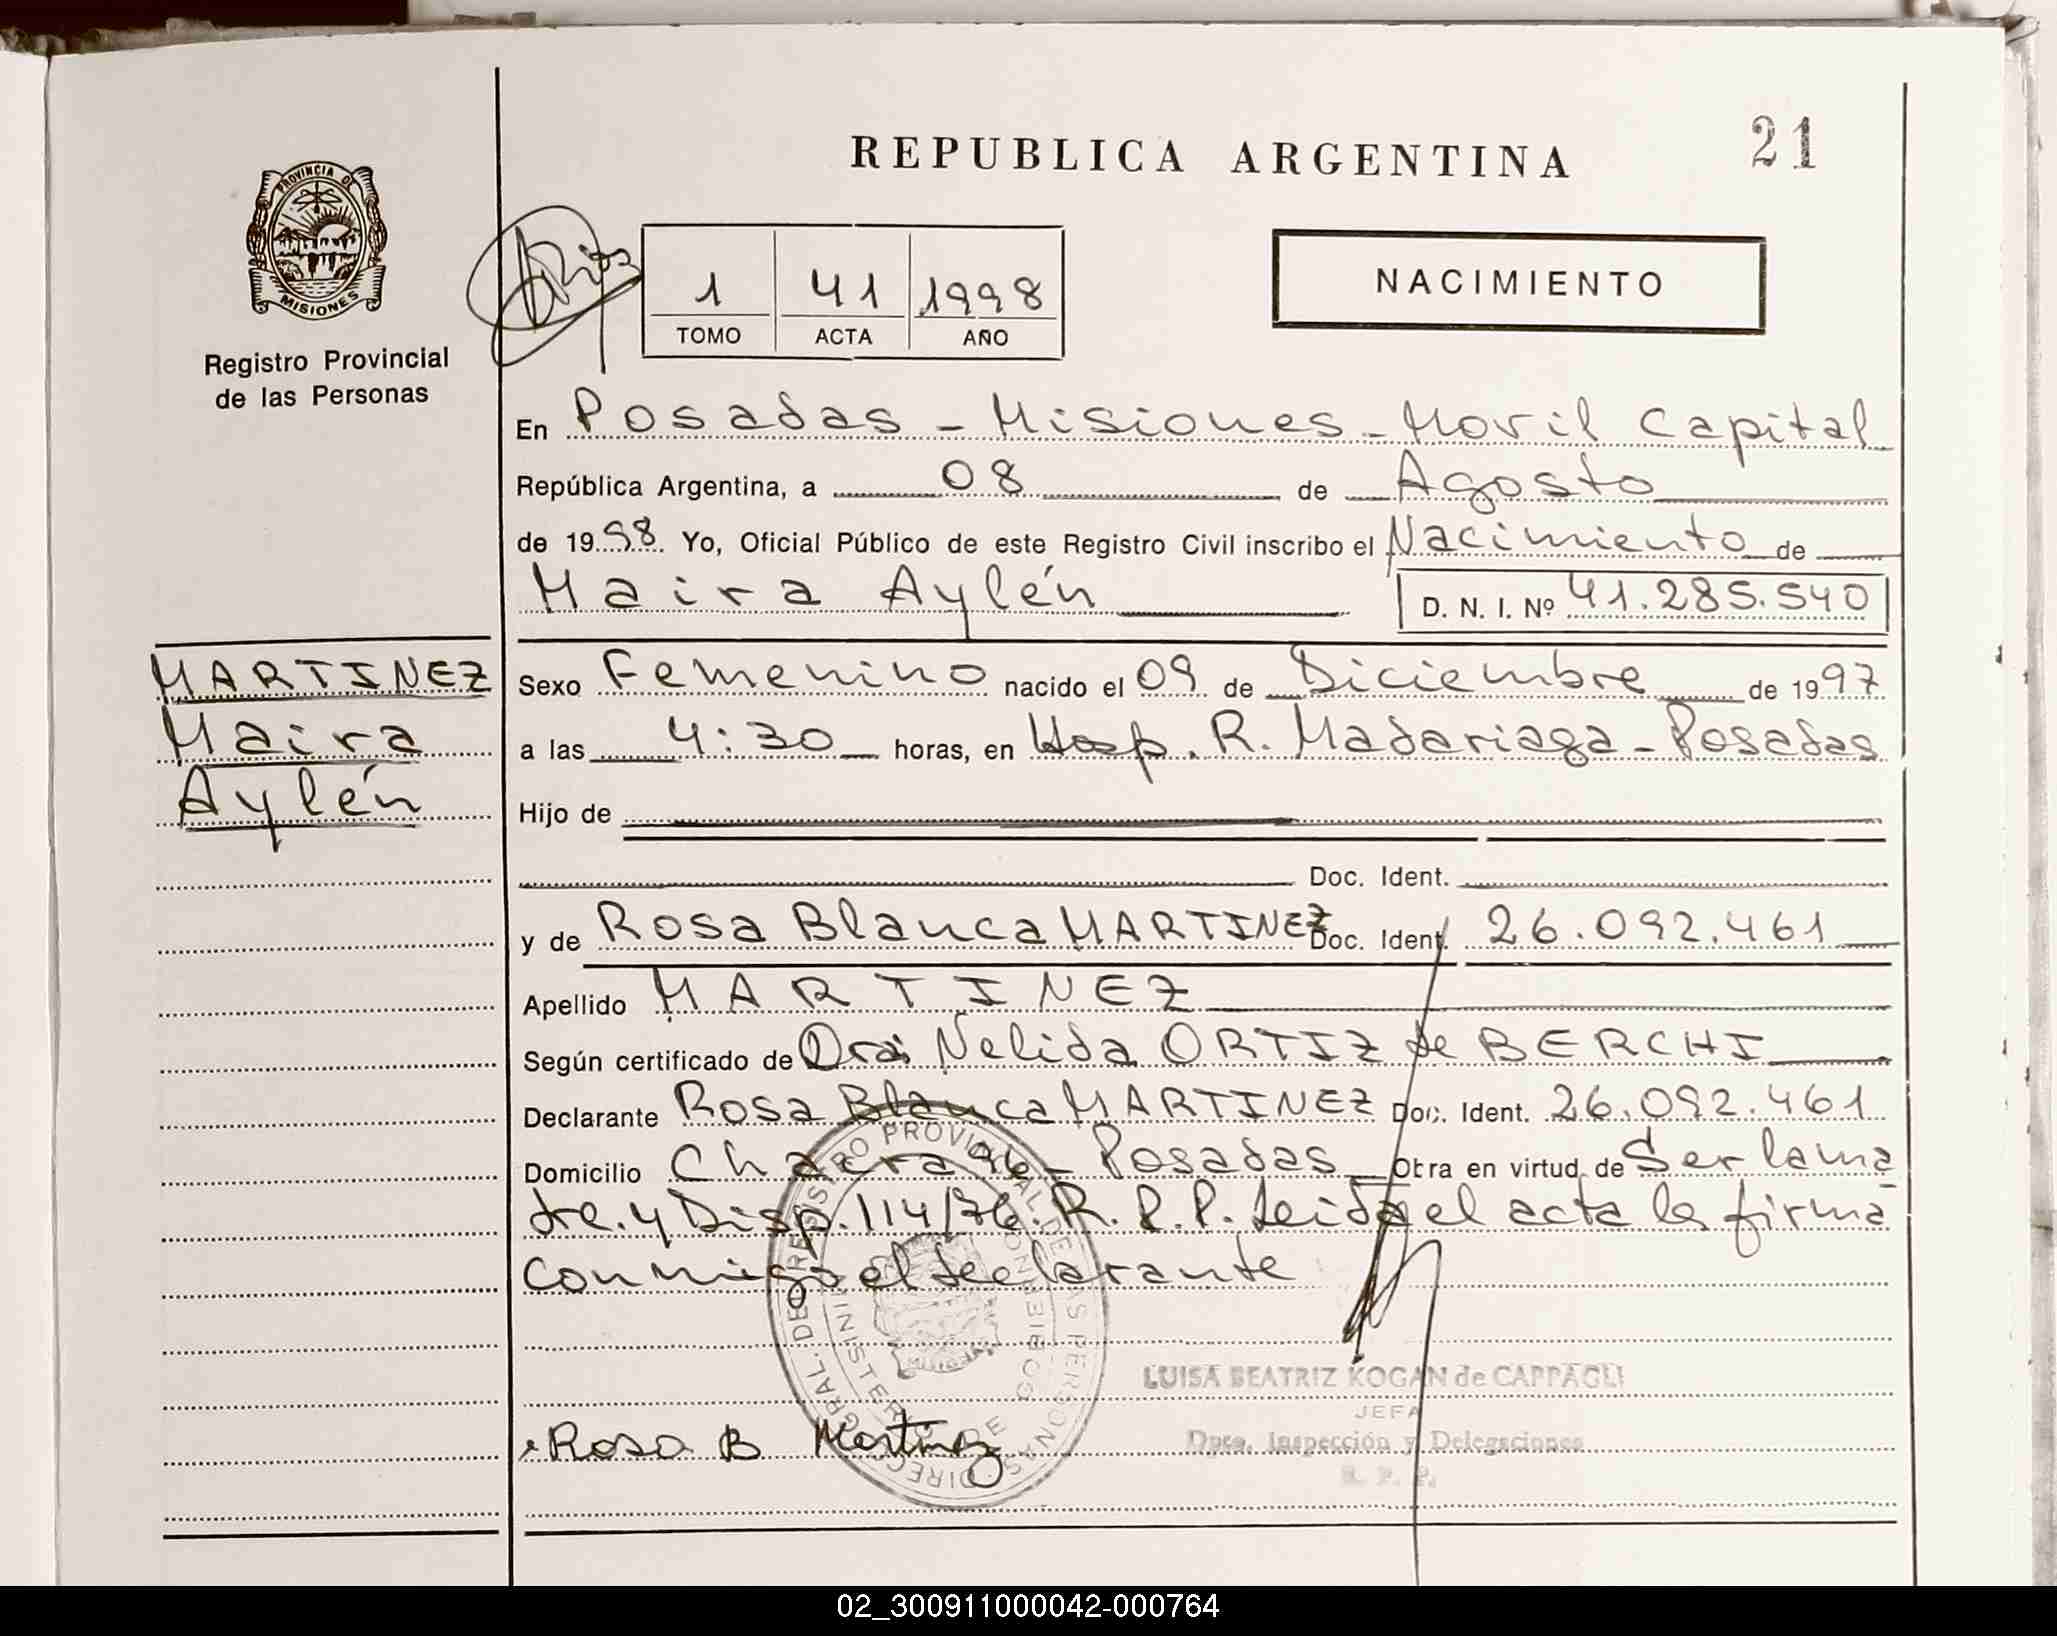 REPUBLICA ARGENTINA
21
PROVINCIA DE
MISIONES
Registro Provincial
de las Personas
1 41 1998
TOMO ACTA AÑO
NACIMIENTO
En Posadas - Misiones - Movil Capital
República Argentina, a 08 de Agosto
de 1998. Yo, Oficial Público de este Registro Civil inscribo el Nacimiento de
Maira Aylén D. N. I. Nº 41.285.540
MARTINEZ
Maira
Aylén
Sexo Femenino nacido el 09 de Diciembre de 1997
a las 4:30 horas, en Hosp. R. Madariaga - Posadas
Hijo de
Doc. Ident.
y de Rosa Blanca MARTINEZ Doc. Ident. 26.092.461
Apellido MARTINEZ
Según certificado de Dra: Nelida ORTIZ de BERCHI
Declarante Rosa Blanca MARTINEZ Doc. Ident. 26.092.461
Domicilio Chacra 96 - Posadas Obra en virtud de Ser la ma
dre. y Disp. 114/76. R. P. P. Leida el acta la firma
conmigo el declarante
DIRECC. GRAL. DE REGISTRO PROVINCIAL DE LAS PERSONAS
MINISTERIO DE GOBIERNO
MISIONES
LUISA BEATRIZ KOGAN de CAPPAGLI
JEFA
Dpto. Inspección y Delegaciones
R. P. P.
Rosa B Martinez
02_300911000042-000764